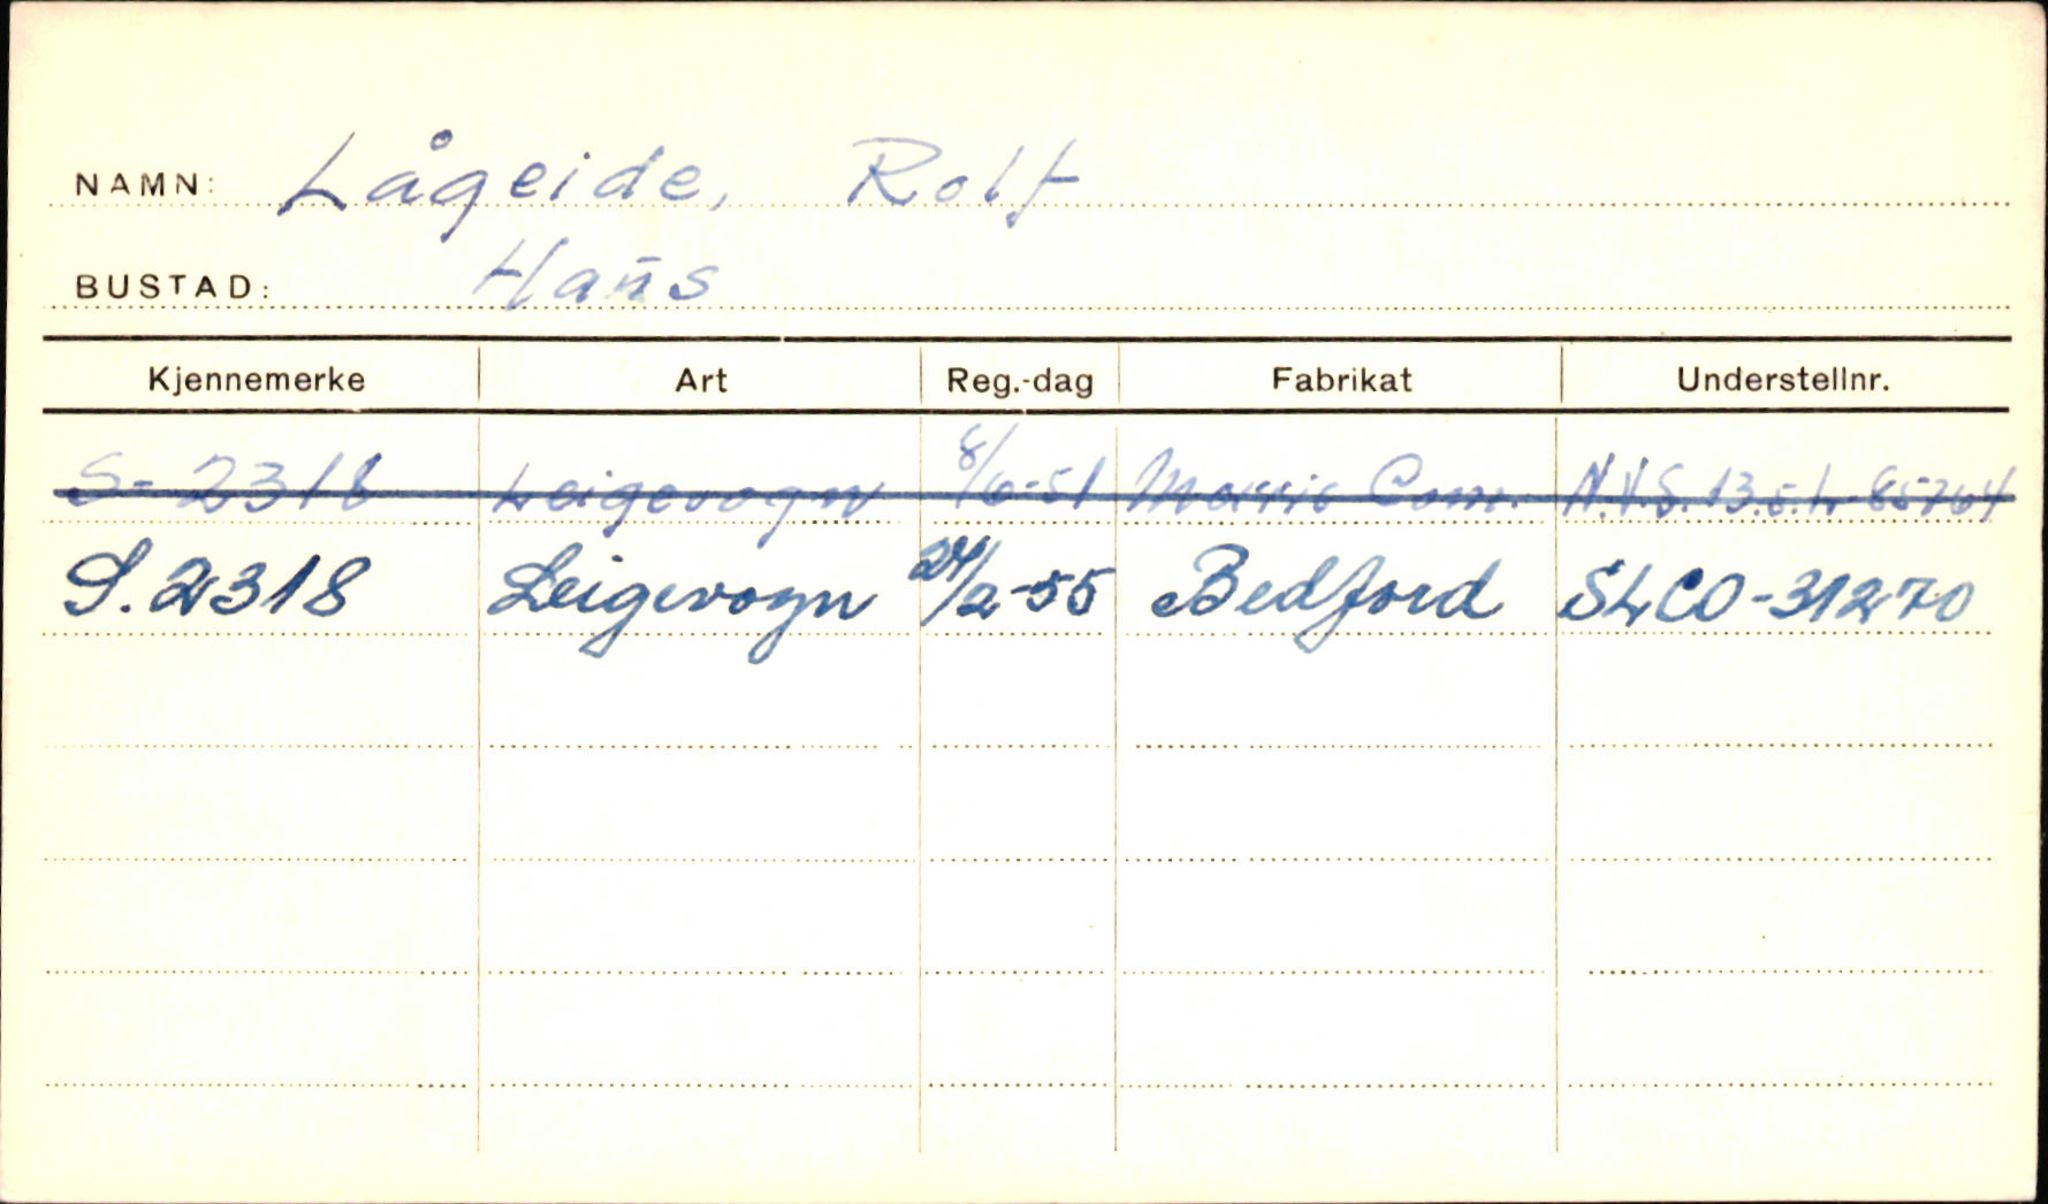 NAMN: Lågeide, Rolf
BUSTAD: Hañs
Kjennemerke Art Reg.-dag Fabrikat Understellnr.
S-2318 Leigevogn 8/6-51 Morris Com. N.V.S. 13.5.L. 85764
S.2318 Leigevogn 24/2-55 Bedford SLCO-31270